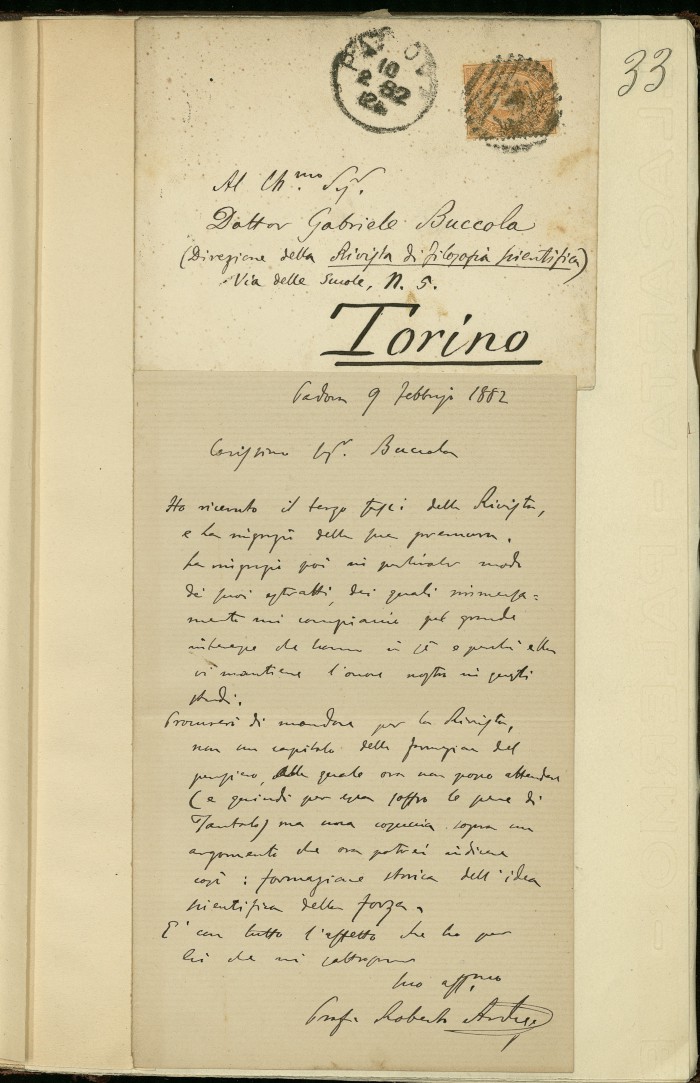 33
PADOVA
10
2 82
12
Al Ch.mo Sigr.
Dottor Gabriele Buccola
(Direzione della Rivista di filosofia scientifica)
Via delle Scuole, N. 5.
Torino
Padova 9 febbrajo 1882
Carissimo Sigr. Buccola
Ho ricevuto il terzo fasc. della Rivista,
e La ringrazio della sua premura.
La ringrazio poi in particolar modo
dei suoi estratti, dei quali immensa=
mente mi compiaccio pel grande
interesse che hanno in sè e perchè ella
vi mantiene l'onore nostro in questi
studi.
Procurerò di mandare per la Rivista,
non un capitolo della formazione del
pensiero, alla quale ora non posso attendere
(e quindi per essa soffro le pene di
Tantalo) ma una cosuccia sopra un
argomento che ora potrei indicare
così: formazione storica dell'idea
scientifica della forza.
E con tutto l'affetto che ho per
Lei che mi
Suo aff.mo
Profr Roberto Ardigò